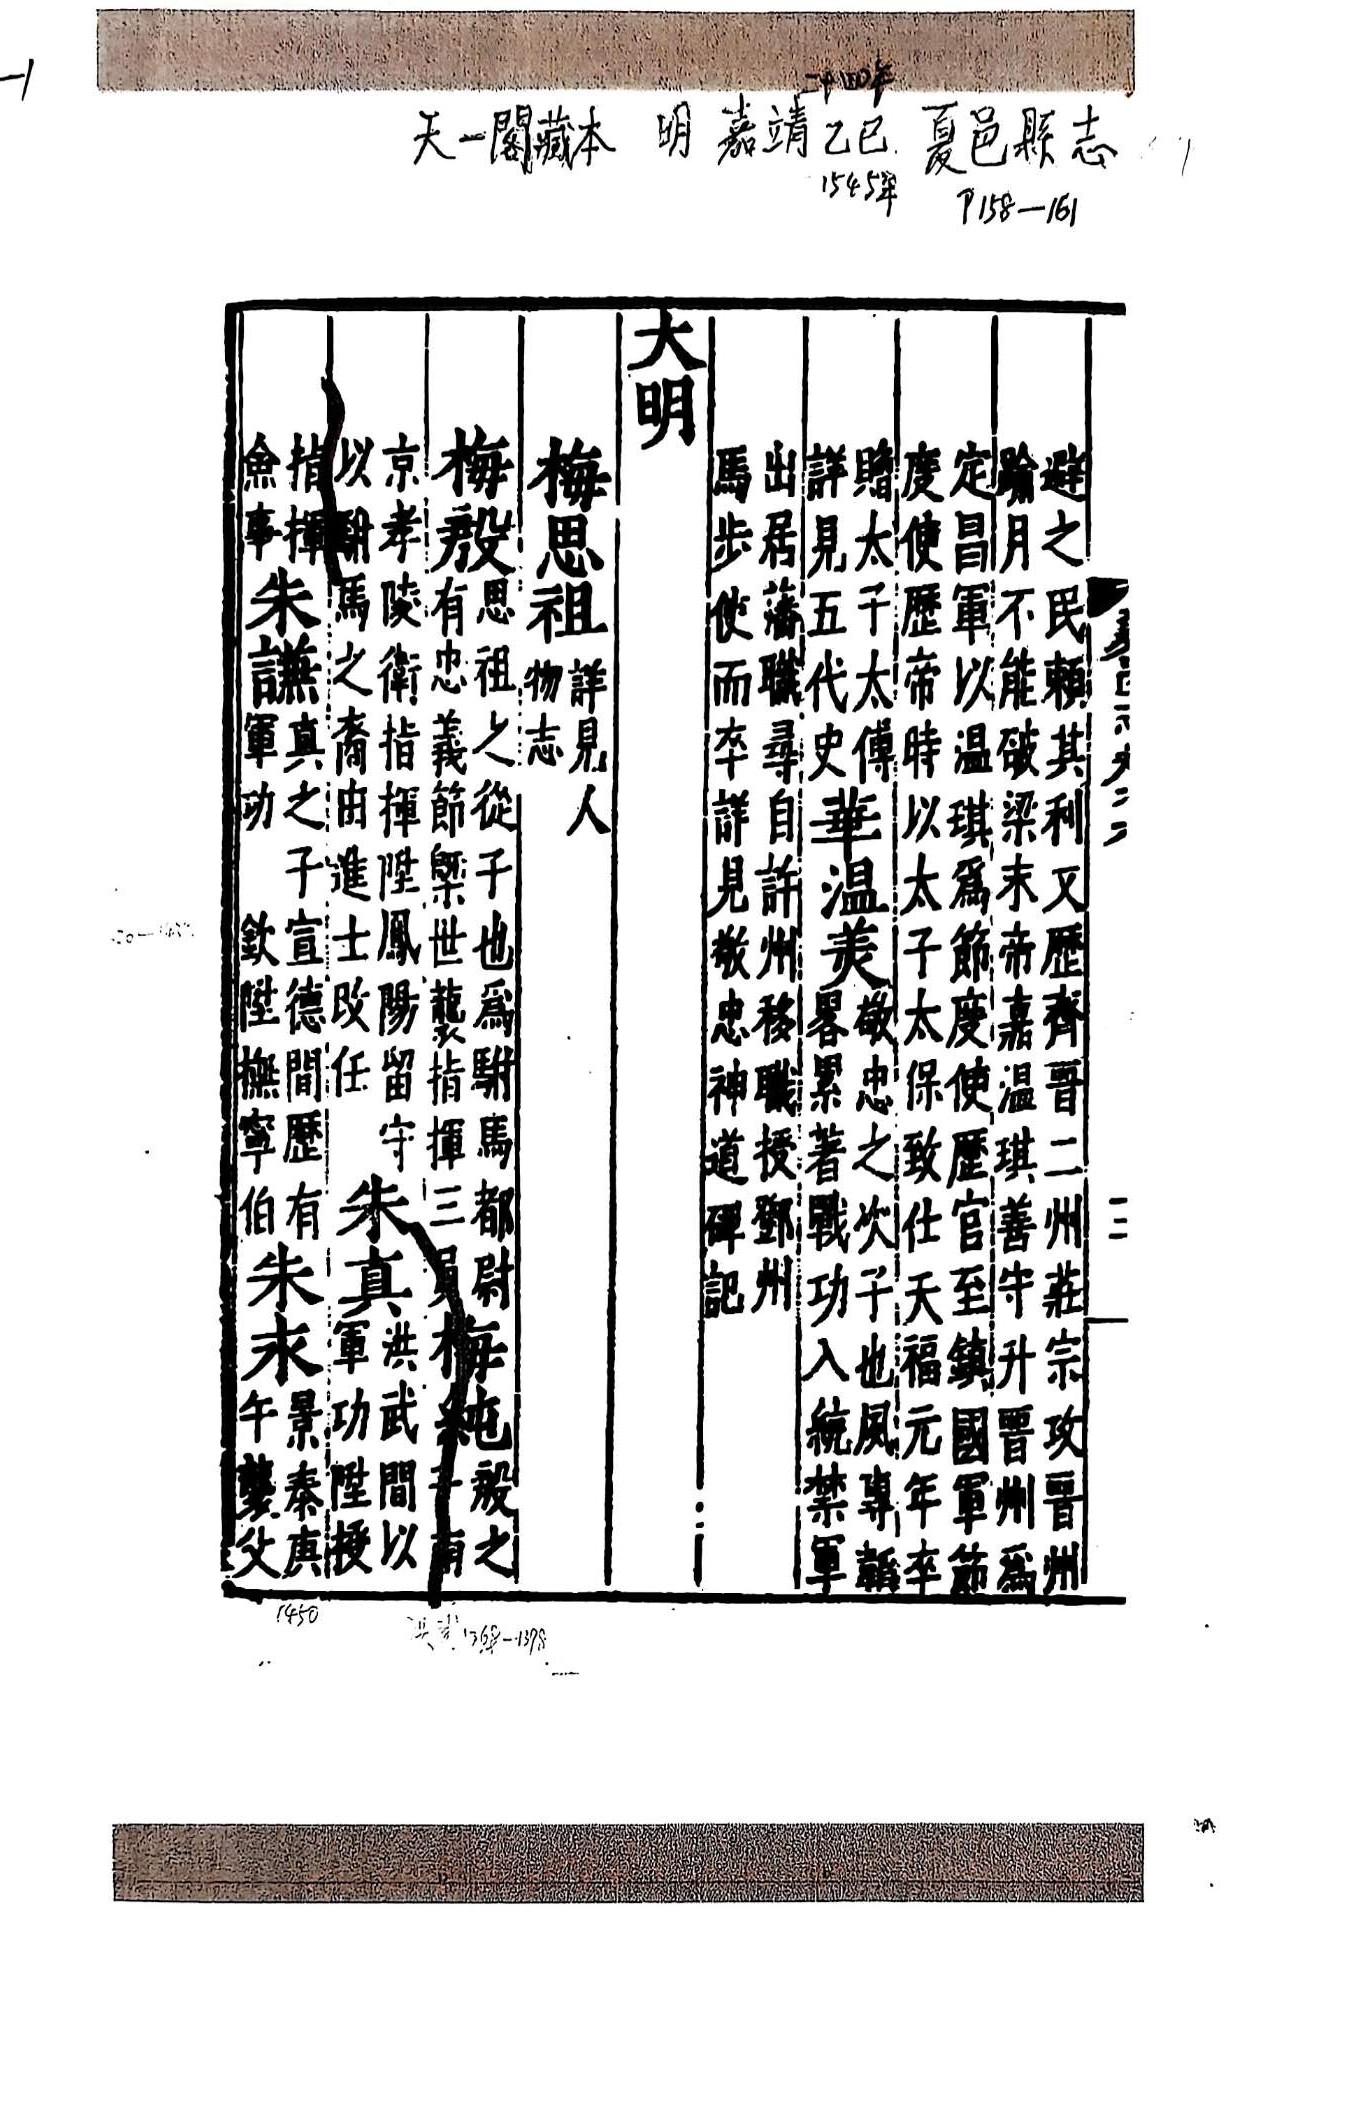 天一閣藏本 明 嘉靖乙巳 夏邑縣志
1545年
P158—161
避之民賴其利又歷齊晉二州莊宗攻晉州
踰月不能破梁末帝嘉温琪善守升晉州為
定昌軍以温琪為節度使歷官至鎮國軍節
度使歷帝時以太子太保致仕天福元年卒
贈太子太傅
詳見五代史
華温羙
敬忠之次子也風專韜
畧累著戰功入統禁軍
出居藩職尋自許州移職授鄧州
馬步使而卒詳見敬忠神道碑記
大明
梅思祖
詳見人
物志
梅殷
思祖之從子也為駙馬都尉
有忠義節槩世襲指揮三員
梅純
殷之
子南
京孝陵衛指揮陞鳳陽留守
以駙馬之裔由進士改任
朱真
洪武間以
軍功陞授
指揮
僉事
朱謙
真之子宣德間歷有
軍功 欽陞撫寧伯
朱永
景泰庚
午襲父
1450
1368—1398